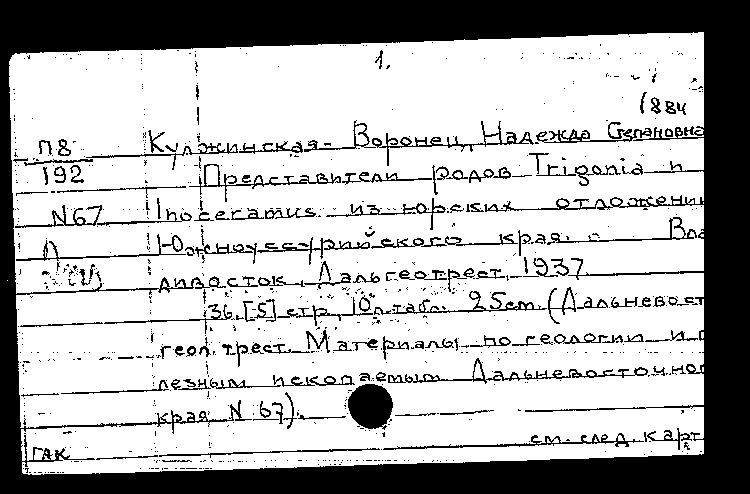 1.
1884
П8 Кулжинская-Воронец, Надежда Степановна
192 Представители родов Trigonia и
N67 Inoceramus из юрских отложени
Южноуссурийского края. Вла
дивосток, Дальгеотрест, 1937
36, [5] стр, 10 л. табл. 25 см. (Дальневост
геол. трест. Материалы по геологии и п
лезным ископаемым Дальневосточног
края N 67).
ГАК см. след. карт